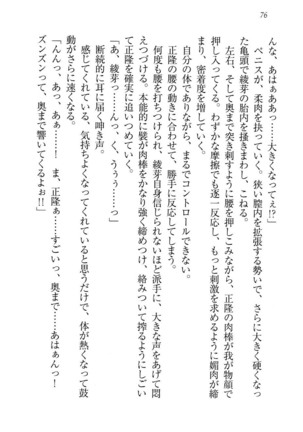 76
んな、あはぁああっ……大きくなってぇ!?」
ペニスが、柔肉を抉っていく。狭い膣内を拡張する勢いで、さらに大きく硬くなっ
た亀頭で綾芽の胎内を掻きまわし、こねる。
左右、そして奥まで突き刺すように腰を押しこみながら、正隆の肉棒が我が物顔で
押し入ってくる。わずかな摩擦でも逐一反応し、もっと刺激を求めるように媚肉が締
まり、密着度を増していく。
自分の体でありながら、まるでコントロールできない。
正隆の腰の動きに合わせて、勝手に反応してしまう。
何度も腰を打ちつけられ、綾芽自身信じられないほど派手に、大きな声をあげて悶
えつづける。本能的に襞が肉棒をかなり強く締めつけ、絡みついて搾るようにしごい
て正隆を確実に追いつめていく。
「あ、綾芽……っ……くっ、く、うぅ……っ」
断続的に耳に届く呻き声。
感じてくれている、気持ちよくなってくれていると思うだけで、体が熱くなって鼓
動がさらに速くなる。
「んんっ、あっ、あぁ……ま、正隆ぁ……すごいっ、奥まで……あはぁんっ!
ズンズンって、奥まで響いてくるよぉ!!」